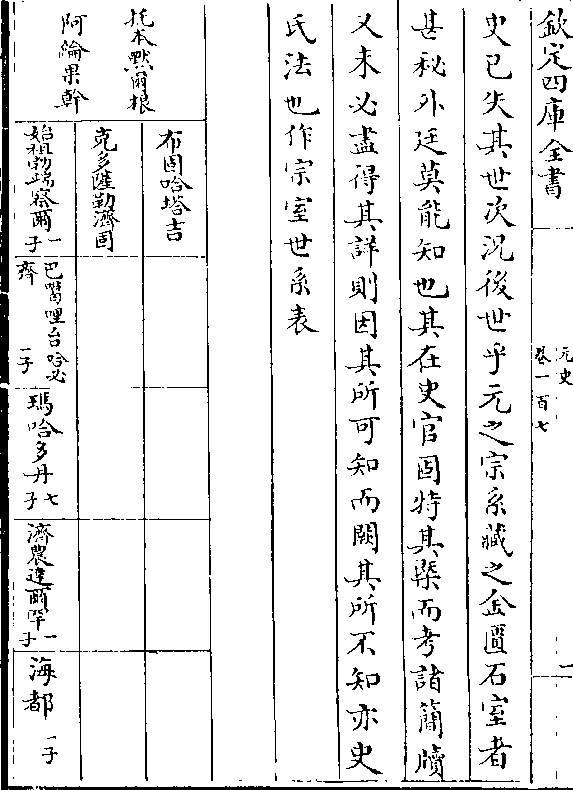 欽定四庫全書
元史
卷一百七
一
史已失其世次況後世乎元之宗系藏之金匱石室者
甚秘外廷莫能知也其在史官固特其槩而考諸簡牘
又未必盡得其詳則因其所可知而闕其所不知亦史
氏法也作宗室世系表
托本默爾根
阿倫果幹
布固哈塔吉
克多薩勒濟固
始祖勃端察爾一子
巴噶哩台哈必齊一子
瑪哈多丹七子
濟農達爾罕一子
海都一子